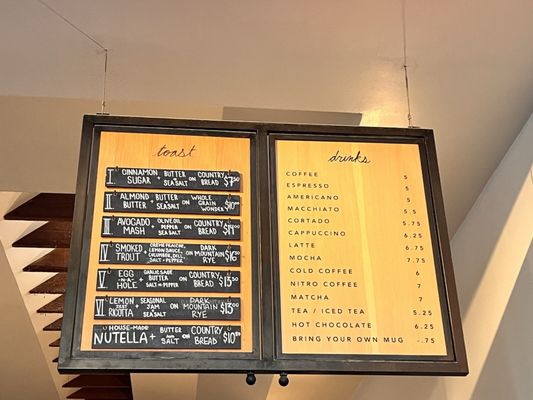 toast
I CINNAMON SUGAR + BUTTER SEA SALT ON COUNTRY BREAD $7.50
II ALMOND BUTTER + BUTTER SEA SALT ON WHOLE GRAIN WONDER
III AVOCADO MASH + OLIVE OIL SEA SALT ON COUNTRY BREAD
IV SMOKED TROUT + CRÈME FRAÎCHE, LEMON SAUCE, CUCUMBER, DILL, SALT + PEPPER ON DARK MOUNTAIN RYE
V EGG -N-A- HOLE + GARLIC SAUCE BUTTER SALT + PEPPER ON COUNTRY BREAD
VI LEMON ZEST RICOTTA + SEASONAL JAM SEA SALT ON DARK MOUNTAIN RYE
VII HOUSE-MADE NUTELLA + BUTTER AND SALT ON COUNTRY BREAD
drinks
COFFEE 5
ESPRESSO 5
AMERICANO 5
MACCHIATO 5.5
CORTADO 5.75
CAPPUCCINO 6.25
LATTE 6.75
MOCHA 7.75
COLD COFFEE 6
NITRO COFFEE 7
MATCHA 7
TEA / ICED TEA 5.25
HOT CHOCOLATE 6.25
BRING YOUR OWN MUG -.75